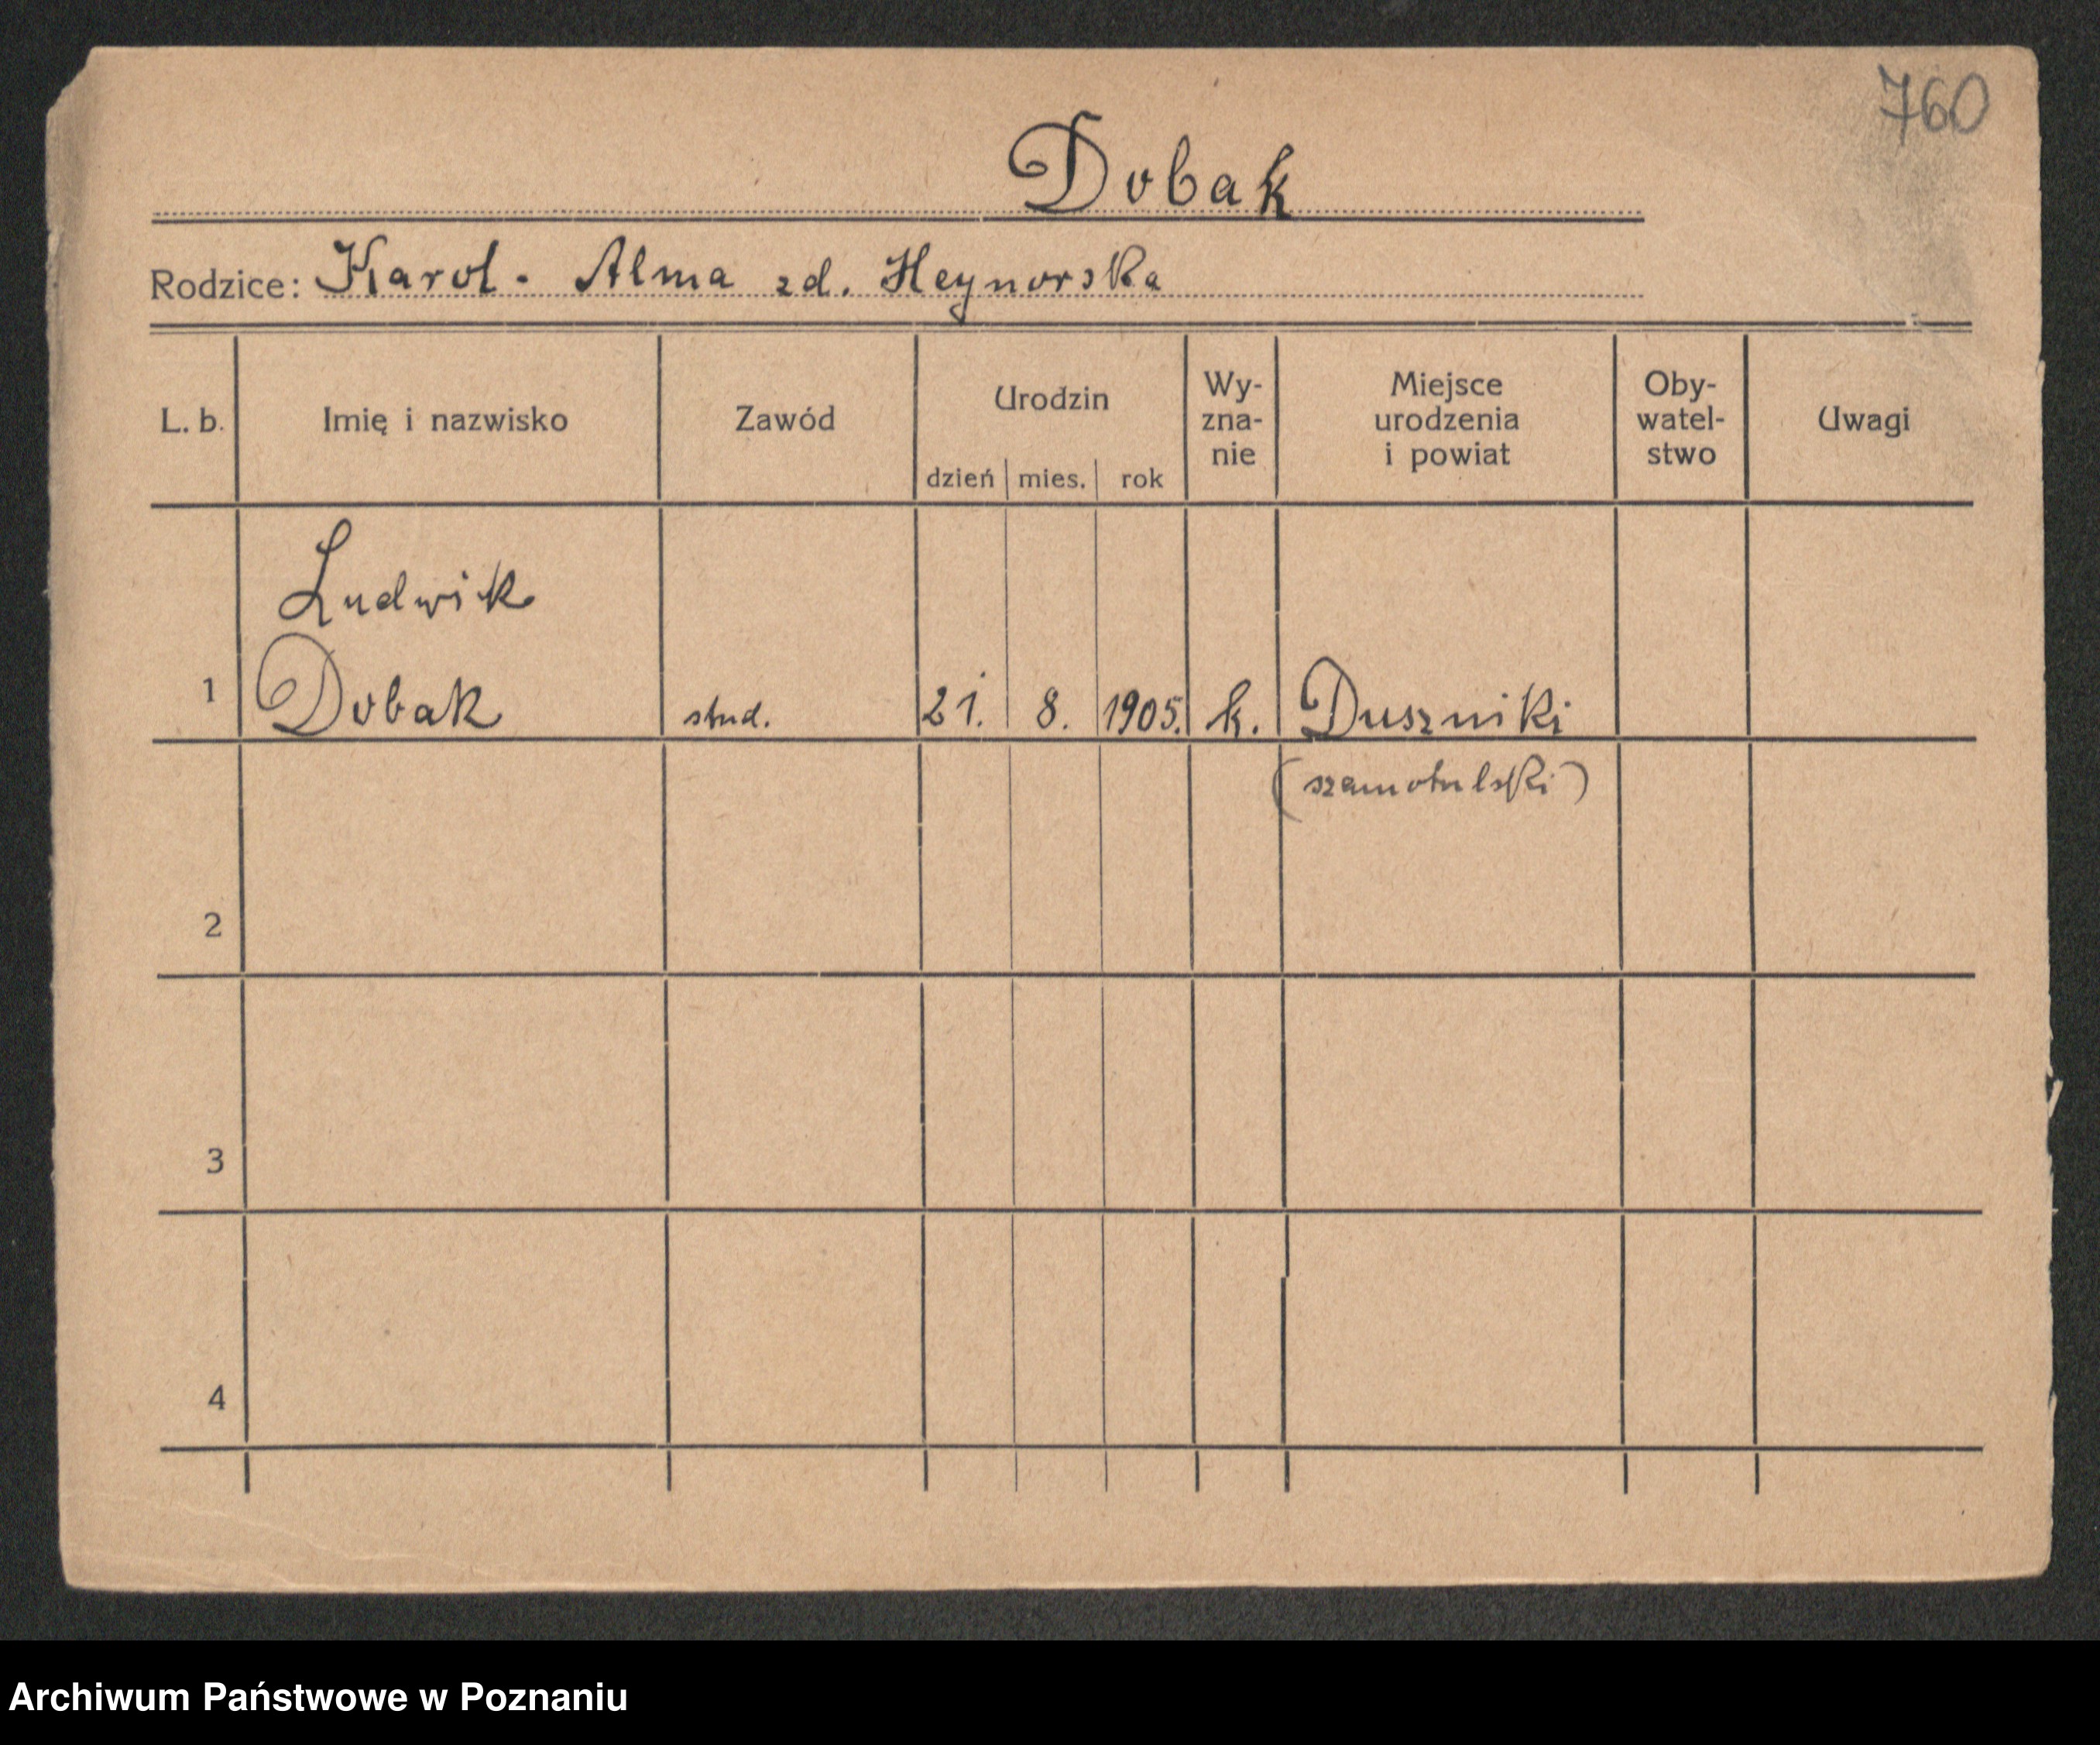 760
Dobak
Rodzice: Karol - Alma zd. Heynorska
L. b. Imię i nazwisko Zawód Urodzin dzień mies. rok Wy-zna-nie Miejsce urodzenia i powiat Oby-watel-stwo Uwagi
Ludwik
1 Dobak stud. 21. 8. 1905. k. Duszniki
(szamotulski)
2
3
4
Archiwum Państwowe w Poznaniu